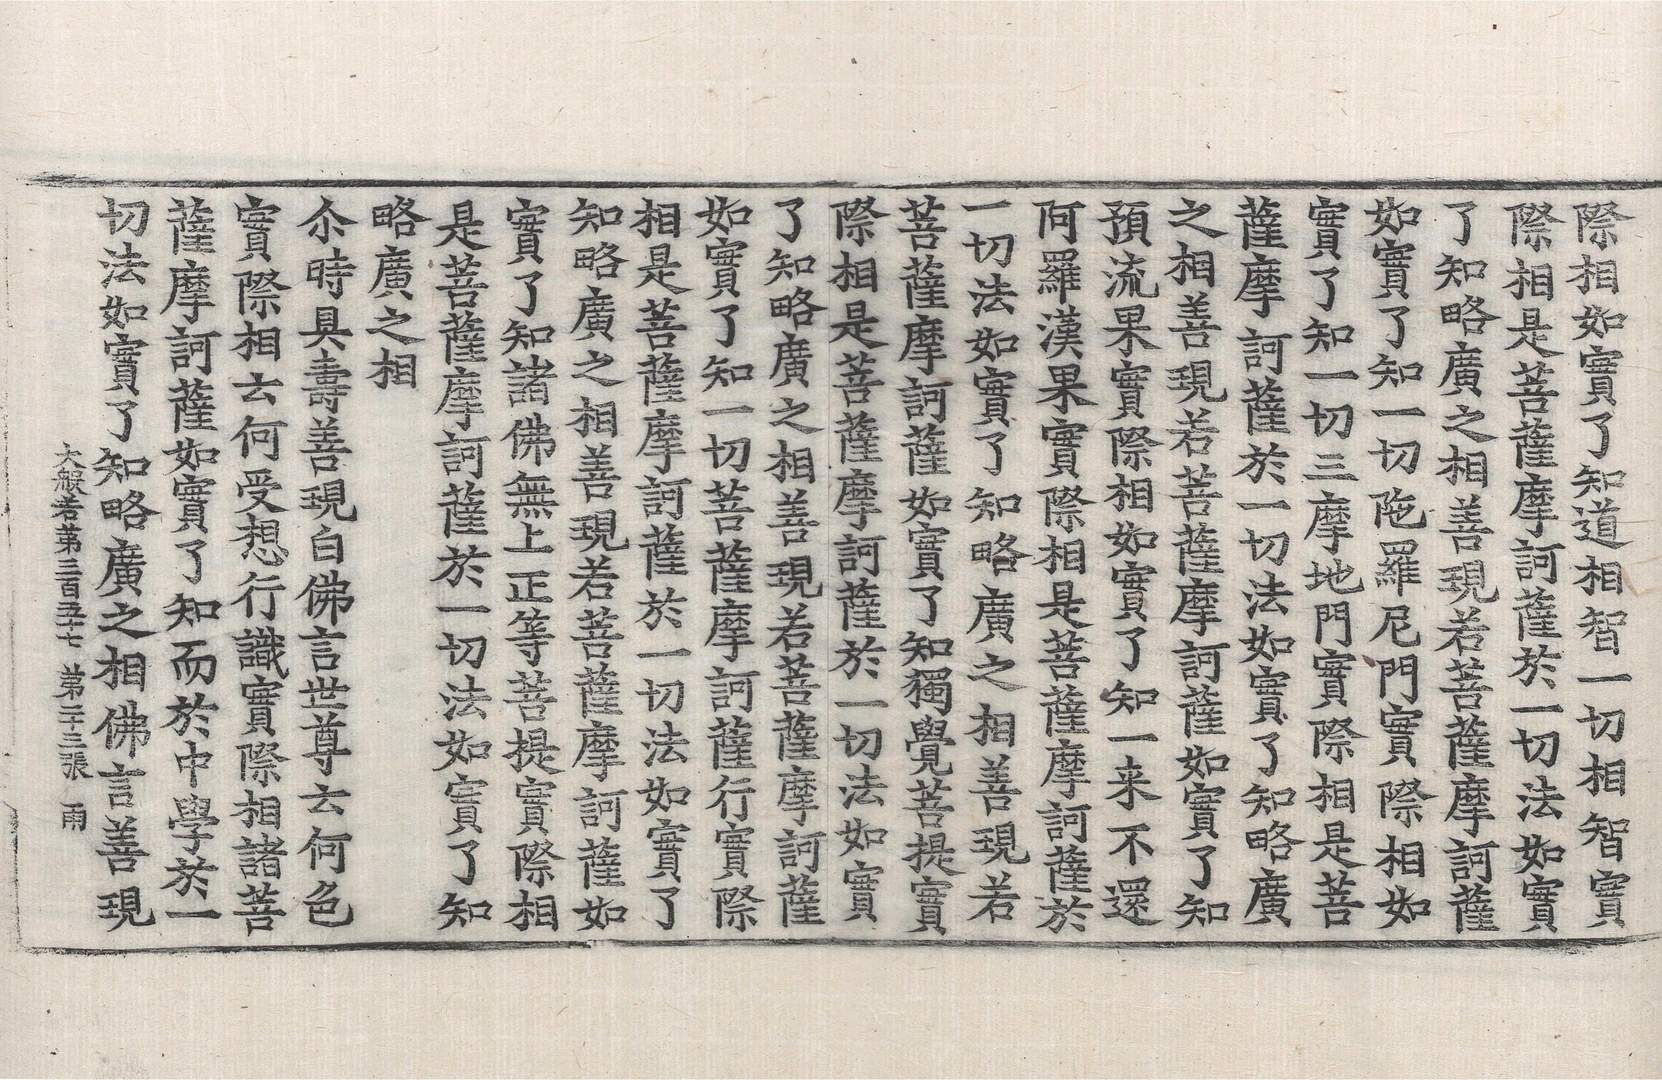 際相如實了知道相智一切相智實
際相是菩薩摩訶薩於一切法如實
了知略廣之相善現若菩薩摩訶薩
如實了知一切陁羅尼門實際相如
實了知一切三摩地門實際相是菩
薩摩訶薩於一切法如實了知略廣
之相善現若菩薩摩訶薩如實了知
預流果實際相如實了知一来不還
阿羅漢果實際相是菩薩摩訶薩於
一切法如實了知略廣之相善現若
菩薩摩訶薩如實了知獨覺菩提實
際相是菩薩摩訶薩於一切法如實
了知略廣之相善現若菩薩摩訶薩
如實了知一切菩薩摩訶薩行實際
相是菩薩摩訶薩於一切法如實了
知略廣之相善現若菩薩摩訶薩如
實了知諸佛無上正等菩提實際相
是菩薩摩訶薩於一切法如實了知
略廣之相
尒時具壽善現白佛言世尊云何色
實際相云何受想行識實際相諸菩
薩摩訶薩如實了知而於中學於一
切法如實了知略廣之相佛言善現
大般若第三百五十七 第二十三張 雨